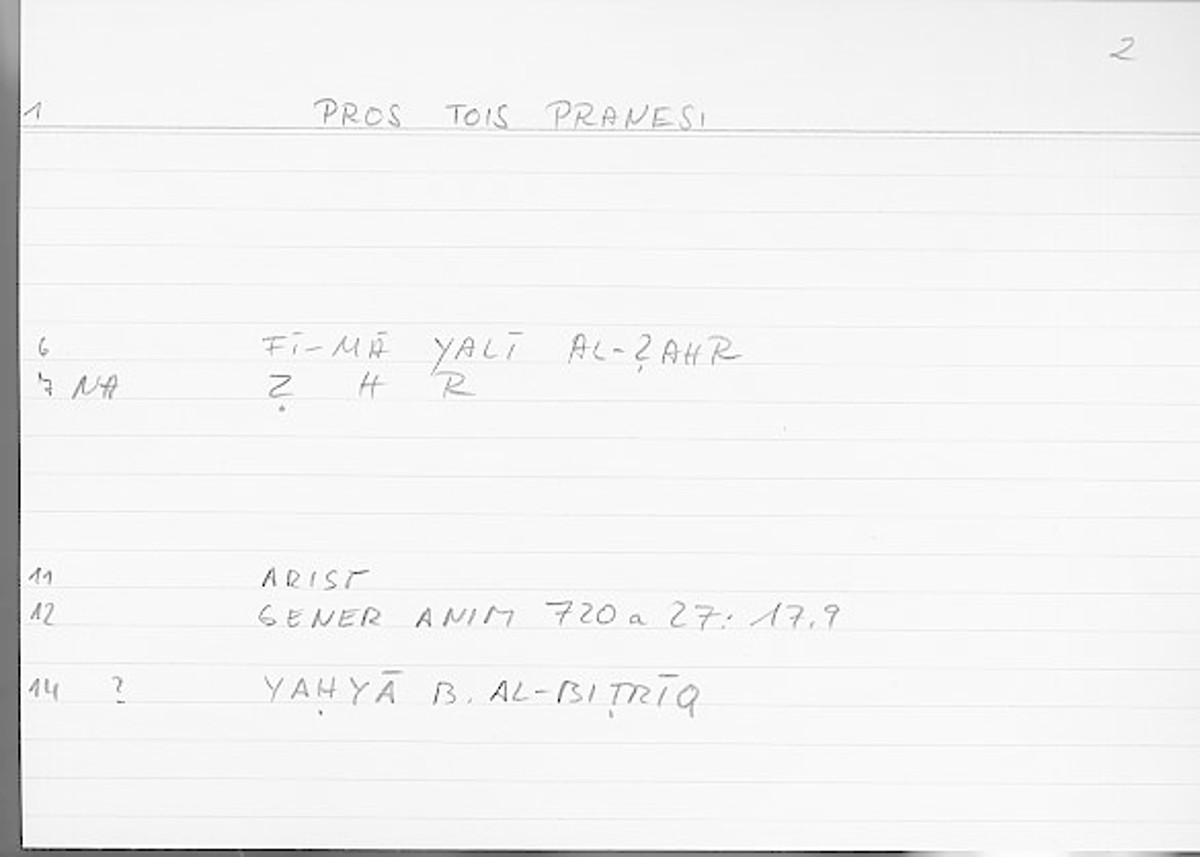 2
1 PROS TOIS PRANESI
6 FĪ-MĀ YALĪ AL-ẒAHR
7 NA Ẓ H R
11 ARIST
12 GENER ANIM 720 a 27: 17.9
14 ? YAḤYĀ B. AL-BIṬRĪQ